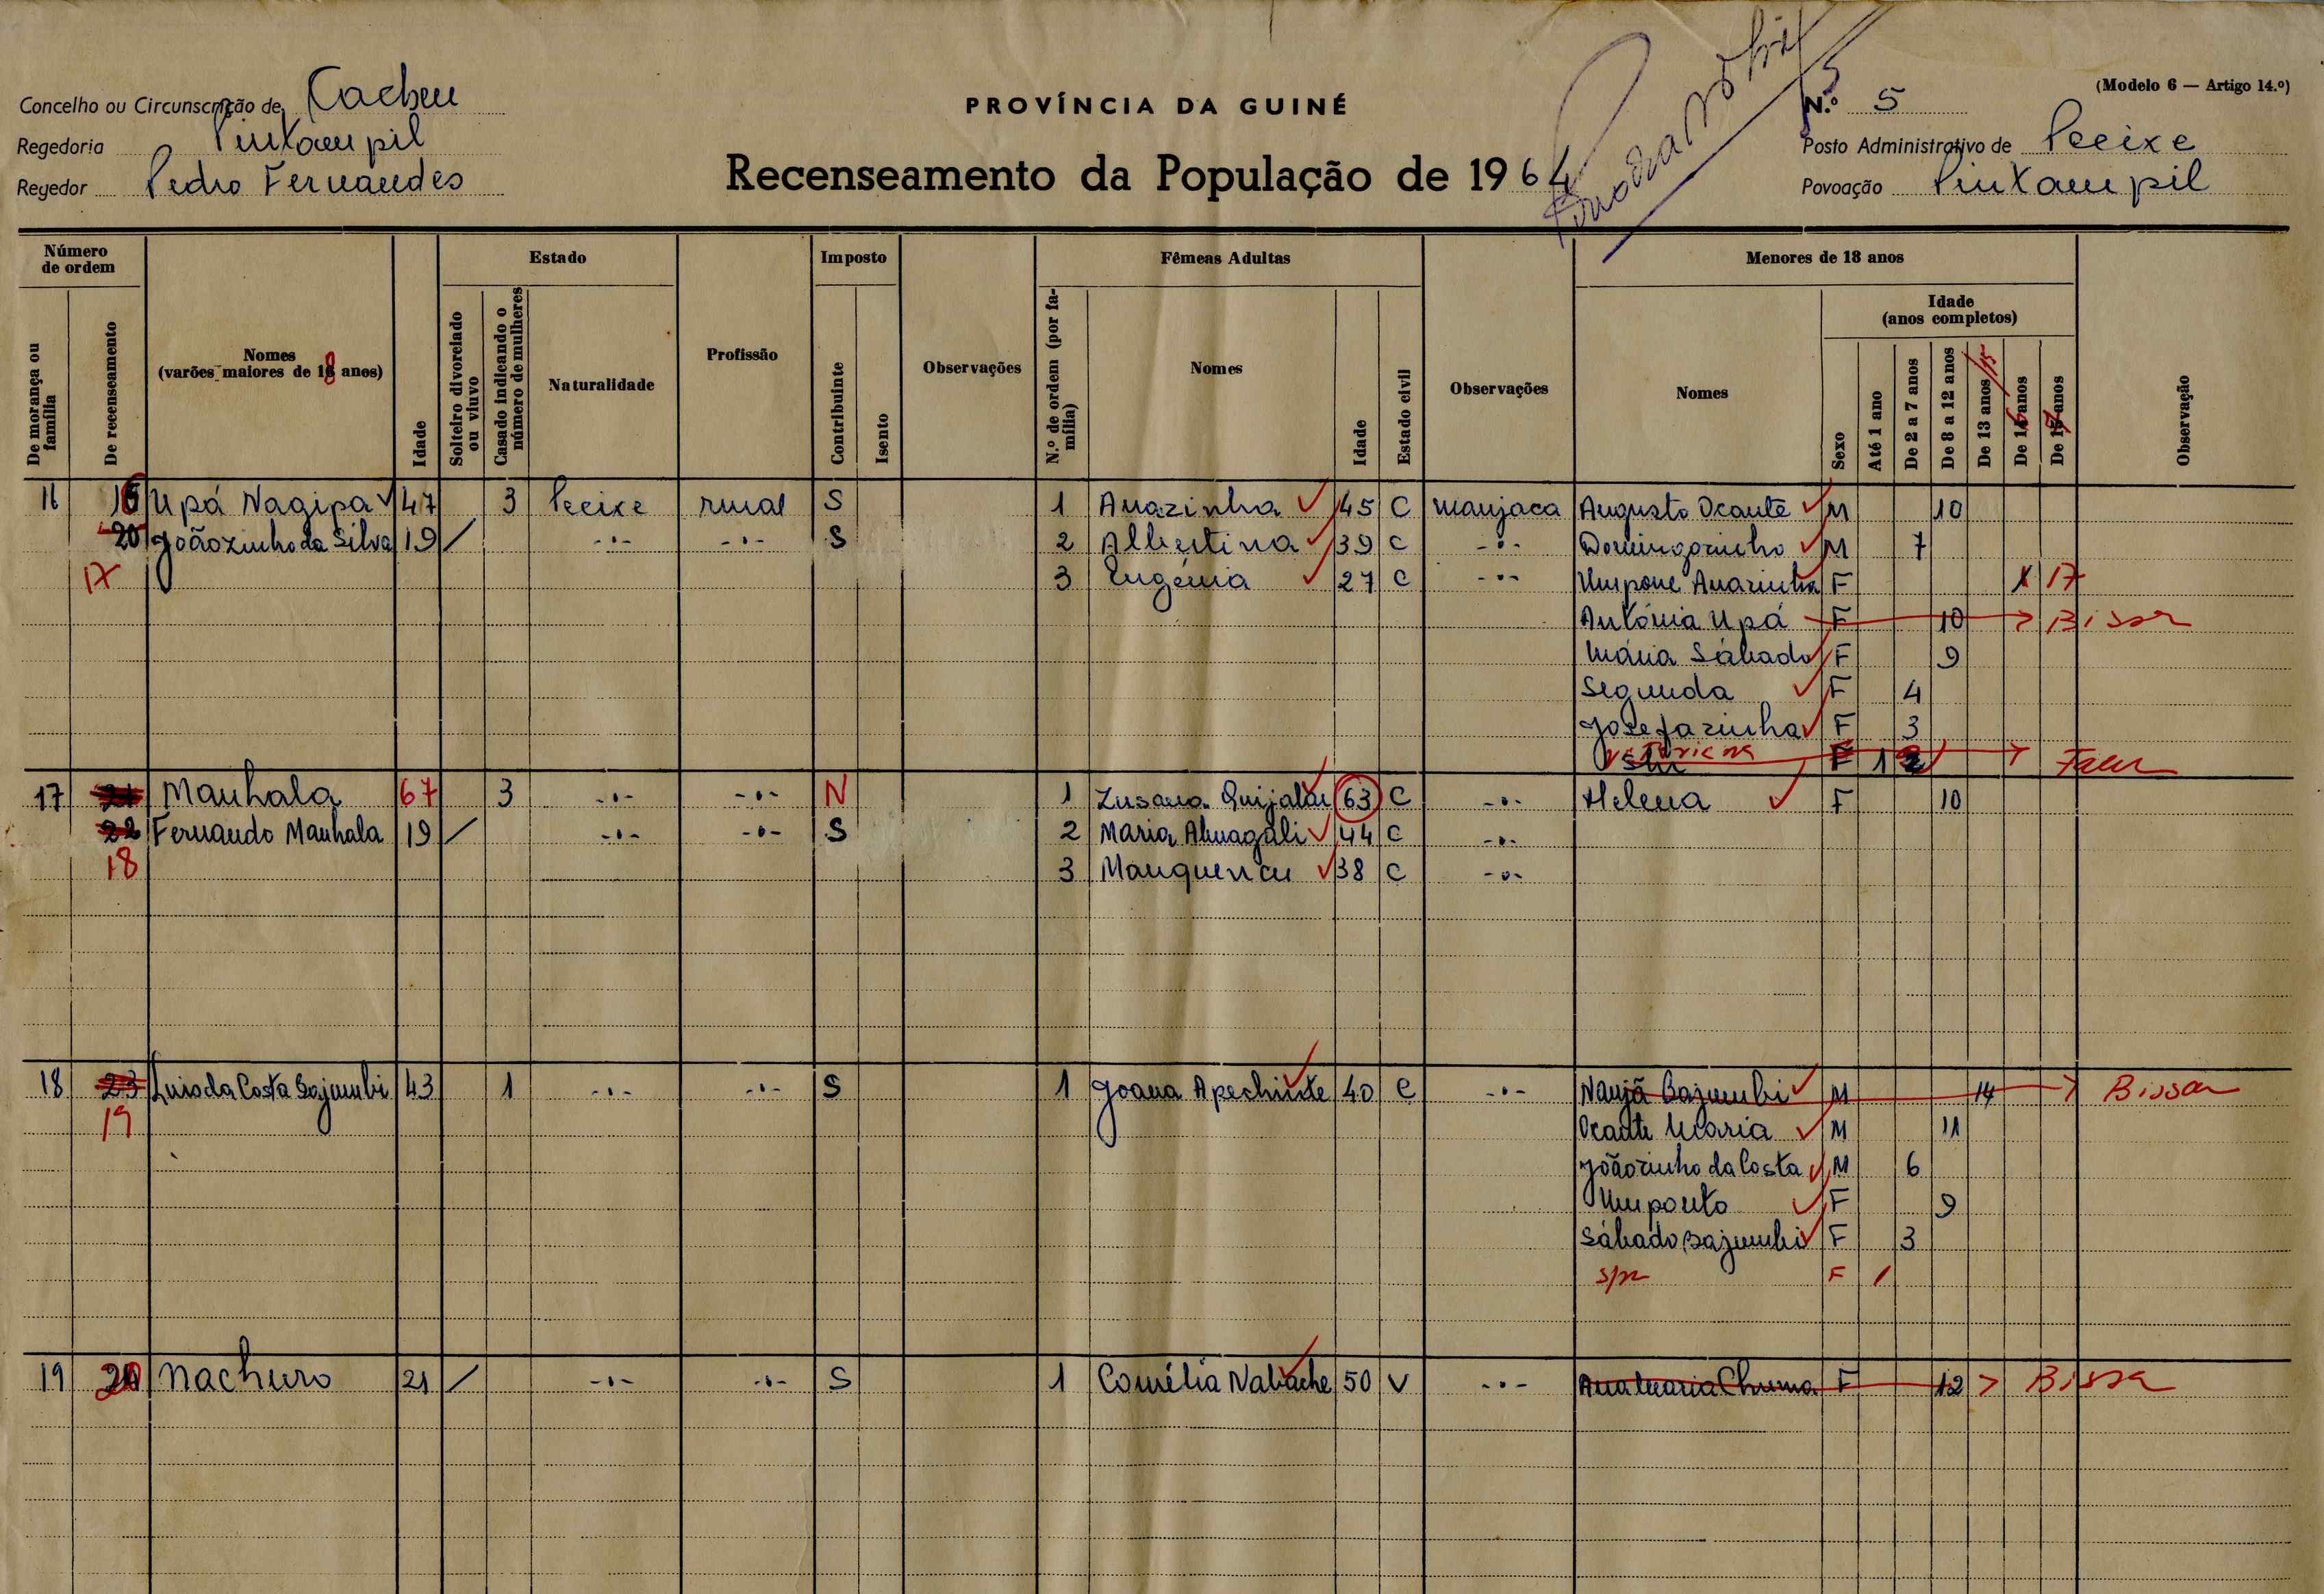 Concelho ou Circunscrição de Cacheu
Regedoria Pintampil
Regedor Pedro Fernandes
PROVÍNCIA DA GUINÉ
Recenseamento da População de 1964
(Modelo 6 — Artigo 14.º)
N.º 5
Posto Administrativo de Pecixe
Povoação Pintampil
Número de ordem
De morança ou família
De recenseamento
Nomes (varões maiores de 18 anos)
Idade
Estado
Solteiro divorciado ou viuvo
Casado indicando o número de mulheres
Naturalidade
Profissão
Imposto
Contribuinte
Isento
Observações
Fêmeas Adultas
N.º de ordem (por família)
Nomes
Idade
Estado civil
Observações
Menores de 18 anos
Nomes
Sexo
Idade (anos completos)
Até 1 ano
De 2 a 7 anos
De 8 a 12 anos
De 13 anos /15
De 16 anos
De 17 anos
Observação
16 16 Upá Nagipa 47 3 Pecixe rural S 1 Anazinha 45 C manjaca Augusto Ocante M 10
20 Joãozinho da Silva 19 / -"- -"- S 2 Albertina 39 C -"- Domingozinho M 7
17 3 Eugénia 27 C -"- Umpone Anazinha F 17
António Upá F 10 Bissa
Mária Sábado F 9
Segunda F 4
Josefazinha F 3
F 1
17 21 Manhala 67 3 -"- -"- N 1 Zusana Quijalan 63 C -"- Helena F 10
22 Fernando Manhala 19 / -"- -"- S 2 Maria Almagali 44 C -"-
18 3 38 C -"-
18 23 Luis da Costa Bajumbi 43 1 -"- -"- S 1 Joana Apechinte 40 C -"- Nanjã Bajumbi M 14 Bissau
19 Ocante Maria M 11
Joãozinho da Costa M 6
Umponto F 9
Sábado Bajumbi F 3
s/n F 1
19 20 Nachuro 21 / -"- -"- S 1 Cornélia Nabache 50 V -"- Ana Maria Chuma F 12 Bissa